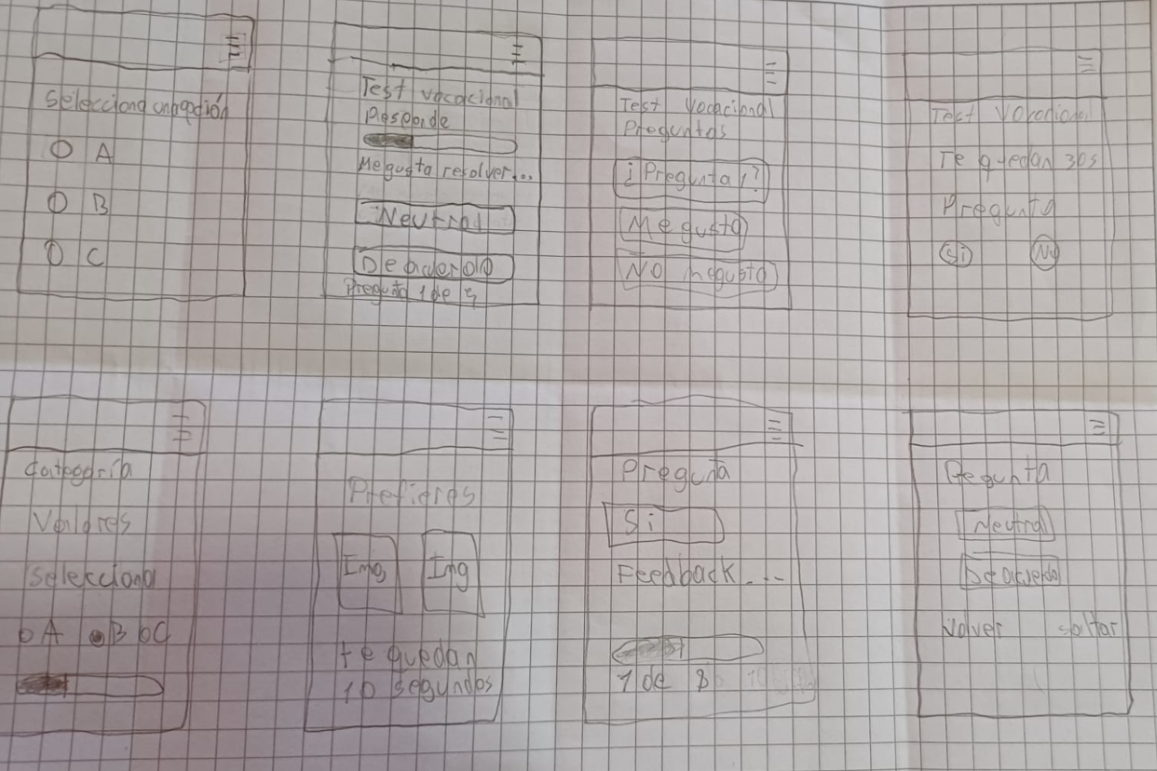 Selecciona una opción
A
B
C
Test vocacional
Responde
Me gusta resolver...
Neutral
De acuerdo
Pregunta 1 de 5
Test Vocacional
Preguntas
¿Pregunta 1?
Me gusta
NO me gusta
Test Vocacional
Te quedan 30s
Pregunta
Si
No
Categoría
Valores
selecciona
A B C
Prefieres
Img
Img
te quedan
10 segundos
Pregunta
Si
Feedback...
1 de 8
Pegunta
Neutral
De acuerdo
Volver saltar